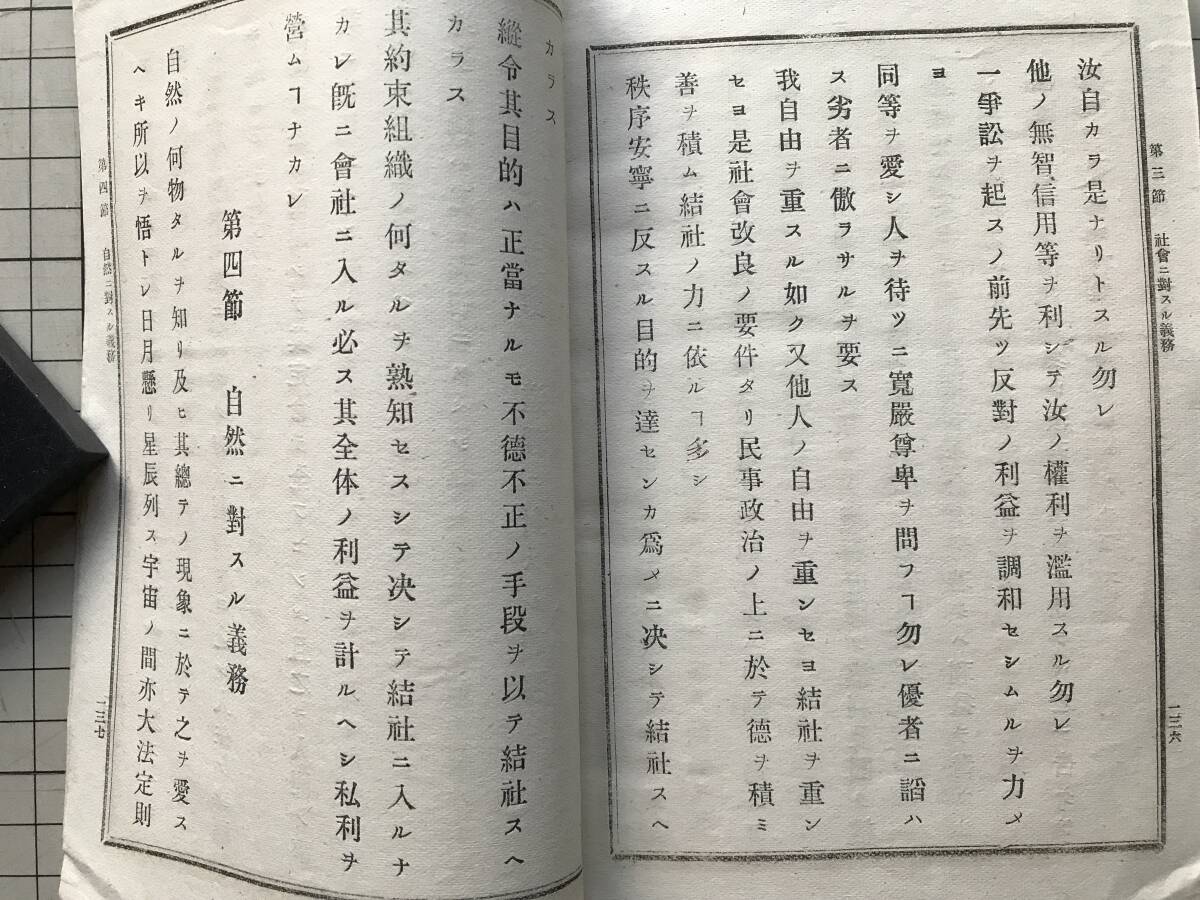 第三節　社會ニ對スル義務
一三六
汝自カラ是ナリトスル勿レ
他ノ無智、信用等ヲ利シテ汝ノ權利ヲ濫用スル勿レ
一爭訟ヲ起スノ前先ツ反對ノ利益ヲ調和セシムルヲ力メ
ヨ
同等ヲ愛シ人ヲ待ツニ寬嚴尊卑ヲ問フヿ勿レ優者ニ謟ハ
ス劣者ニ傲ラサルヲ要ス
我自由ヲ重スル如ク又他人ノ自由ヲ重ンセヨ結社ヲ重ン
セヨ是社會改良ノ要件タリ民事政治ノ上ニ於テ德ヲ積ミ
善ヲ積ム結社ノ力ニ依ルヿ多シ
秩序安寧ニ反スル目的ヲ達センカ爲メニ决シテ結社スヘ
カラス
縱令其目的ハ正當ナルモ不德不正ノ手段ヲ以テ結社スヘ
カラス
其約束組織ノ何タルヲ熟知セスシテ决シテ結社ニ入ルナ
カレ旣ニ會社ニ入ル必ス其全体ノ利益ヲ計ルヘシ私利ヲ
營ムヿナカレ
第四節　自然ニ對スル義務
自然ノ何物タルヲ知リ及ヒ其總テノ現象ニ於テ之ヲ愛ス
ヘキ所以ヲ悟トレ日月懸リ星辰列ス宇宙ノ間亦大法定則
第四節　自然ニ對スル義務
一三七